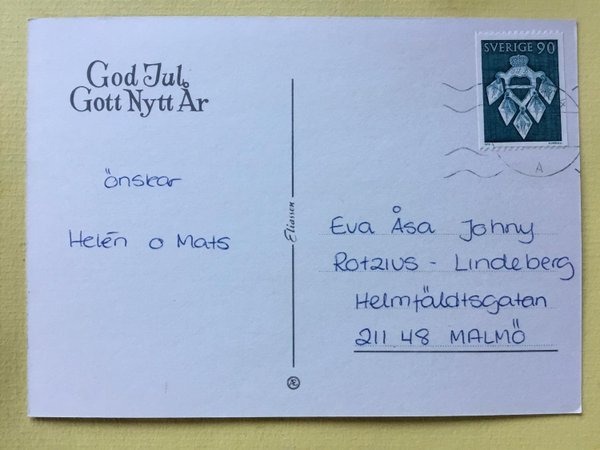 God Jul
Gott Nytt År
önskar
Helén o Mats
Eliassen
SVERIGE 90
Eva Åsa Johny
Rotzius - Lindeberg
Helmfäldtsgatan
211 48 MALMÖ
A